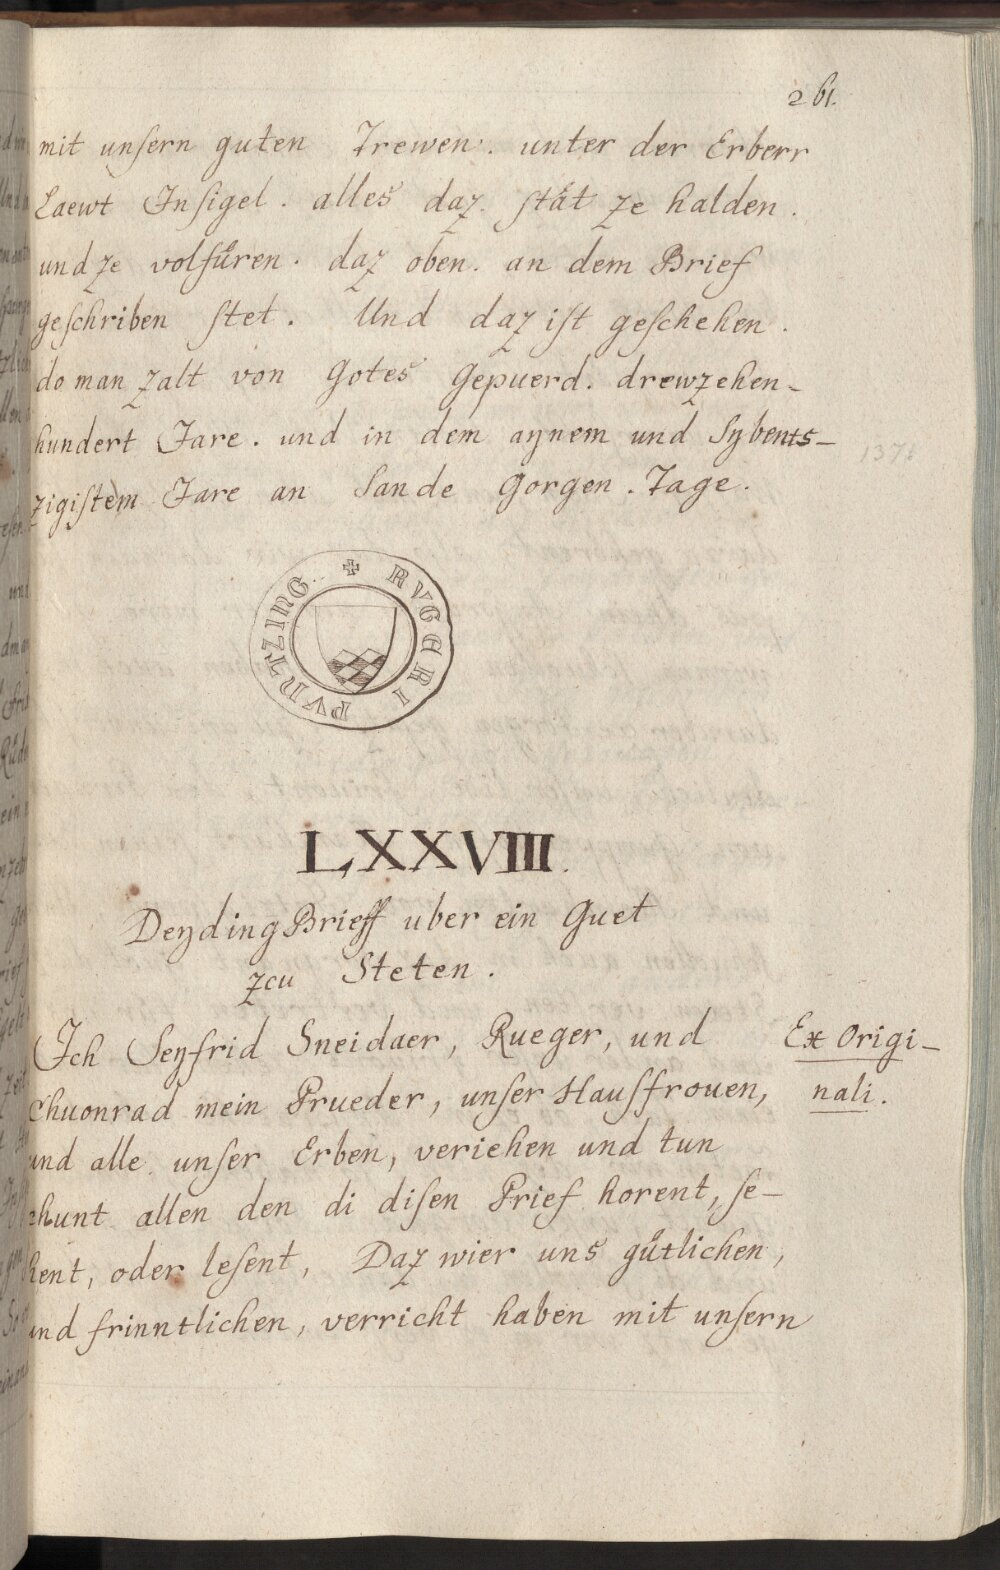 261.
mit unsern guten Trewen. unter der Erberr
Laewt Insigel. alles daz stät ze halden.
und ze volfüren. daz oben. an dem Brief
geschriben stet. Und daz ist geschehen.
do man zalt von Gotes Gepuerd. drewzehen-
hundert Jare. und in dem aynem und Sybents-
zigistem Jare an Sande Gorgen. Tage.
1371
✠ RUGERI PUNTZING
LXXVIII.
Deyding Brieff uber ein Guet
zcu Steten.
Ich Seyfrid Sneidaer, Rueger, und
Chuonrad mein Prueder, unser Hausfrouen,
und alle unser Erben, veriehen und tun
chunt allen den di disen Prief horent, se-
hent, oder lesent, Daz wier uns gütlichen,
und frinntlichen, verricht haben mit unsern
Ex Origi-
nali.